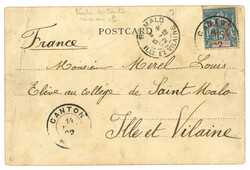 France
POSTCARD
Sᵗ MALO
ILLE ET VILAINE
CANTON
Monsieur Merel Louis
Elève au college de Saint Malo
Ille et Vilaine
CANTON
02